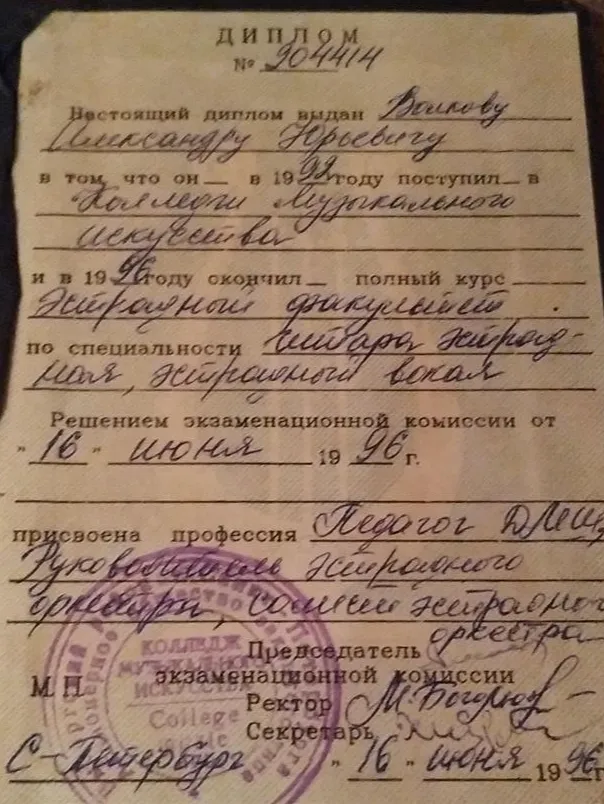 ДИПЛОМ
№ 904414
Настоящий диплом выдан Волкову
Александру Юрьевичу
в том, что он в 1992 году поступил в
Колледж Музыкального
искусства
и в 1996 году окончил полный курс
Эстрадный факультет .
по специальности гитара эстрад-
ная, эстрадный вокал
Решением экзаменационной комиссии от
"16" июня 1996 г.
присвоена профессия Педагог ДМШ,
Руководитель эстрадного
оркестра, солист эстрадного
оркестра
Председатель
экзаменационной комиссии
МП
Ректор
Секретарь
С-Петербург "16" июня 1996
КОЛЛЕДЖ
МУЗЫКАЛЬНОГО
ИСКУССТВА
College